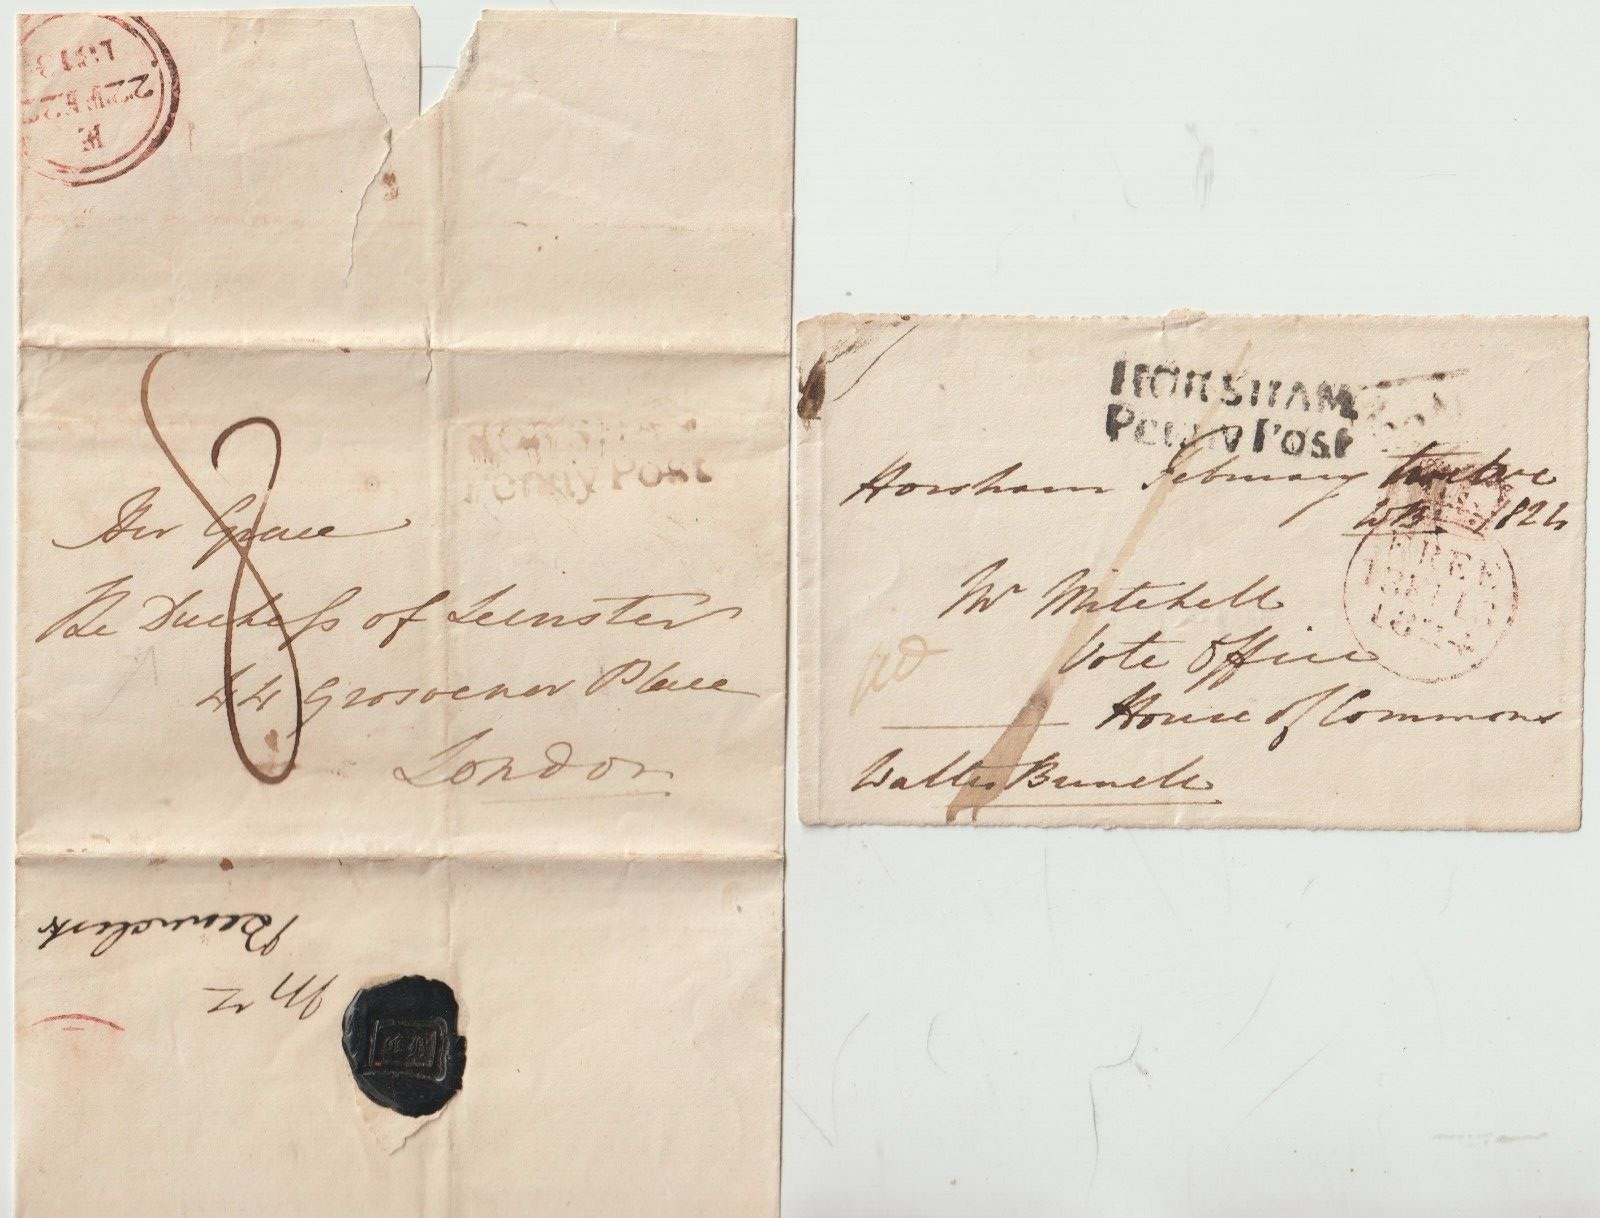 1813
22 FE 22
E
8
Horsham
Penny Post
Her Grace
The Duchess of Leinster
44 Grosvenor Place
London
Mr
HORSHAM
Penny Post
Horsham February twelve
WB 1824
FREE
1824
Mr Mitchell
Vote Office
House of Commons
Walter Burrell